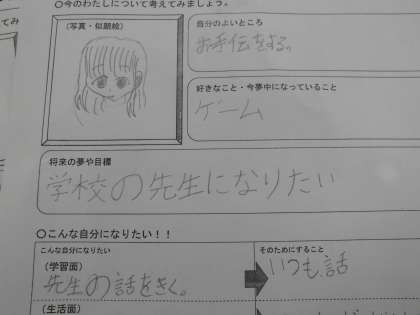 ○今のわたしについて考えてみましょう。
(写真・似顔絵)
自分のよいところ
お手伝をする。
好きなこと・今夢中になっていること
ゲーム
将来の夢や目標
学校の先生になりたい
○こんな自分になりたい!!
こんな自分になりたい
(学習面)
先生の話をきく。
そのためにすること
いつも話
(生活面)